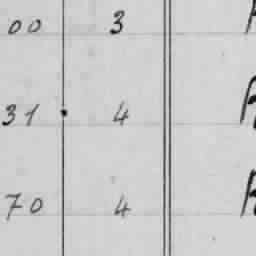 00 3
31 4
70 4